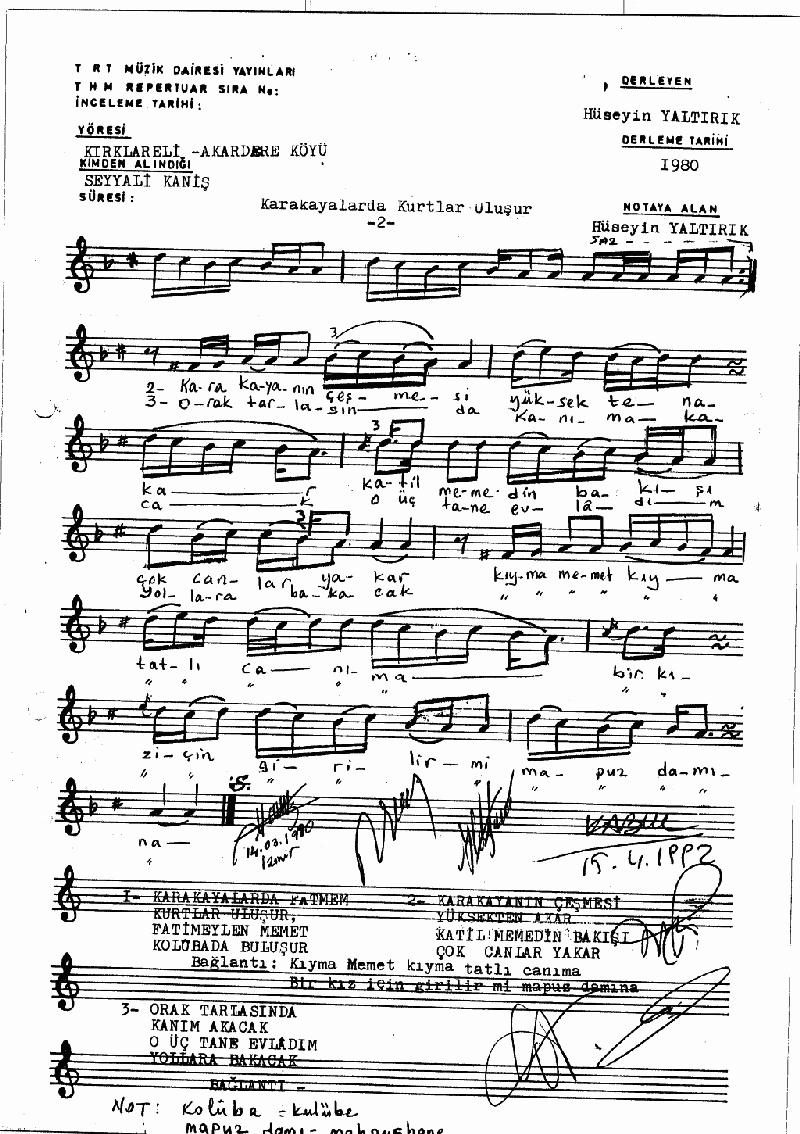 T R T MÜZİK DAİRESİ YAYINLARI
T H M REPERTUAR SIRA No:
İNCELEME TARİHİ:
YÖRESİ
KIRKLARELİ -AKARDERE KÖYÜ
KİMDEN ALINDIĞI
SEYYALİ KANIŞ
SÜRESİ:
DERLEYEN
Hüseyin YALTIRIK
DERLEME TARİHİ
1980
NOTAYA ALAN
Hüseyin YALTIRIK
Karakayalarda Kurtlar Uluşur
-2-
SAZ
3
2- Ka-ra ka-ya-nın çeş- me- si yük-sek te- na-
3- O-rak tar-la-sın da ka-nı- ma- ka-
3
ka r ka-til me-me-din ba- kı- şı
ca k o üç ta-ne ev- lâ- dı- m
3
çok can- lar ya- kar kıy-ma me-met kıy- ma
yol-la-ra ba-ka cak " " " " "
tat-lı ca- nı- ma bir kı-
" " " " " " "
zi-çin gi- ri- lir- mi ma- puz da-mı-
" " " " " " " " "
na-
"
14.03.1990
İzmir
KABUL
15.4.1992
1- KARAKAYALARDA FATMEM
KURTLAR ULUŞUR,
FATİMEYLEN MEMET
KOLÜBADA BULUŞUR
2- KARAKAYANIN ÇEŞMESİ
YÜKSEKTEN AKAR
KATİL MEMEDİN BAKIŞI
ÇOK CANLAR YAKAR
Bağlantı: Kıyma Memet kıyma tatlı canıma
Bir kız için girilir mi mapus damına
3- ORAK TARLASINDA
KANIM AKACAK
O ÜÇ TANE EVLADIM
YOLLARA BAKACAK
BAĞLANTI -
NOT: Kolüba = kulübe
mapuz damı = mahpushane